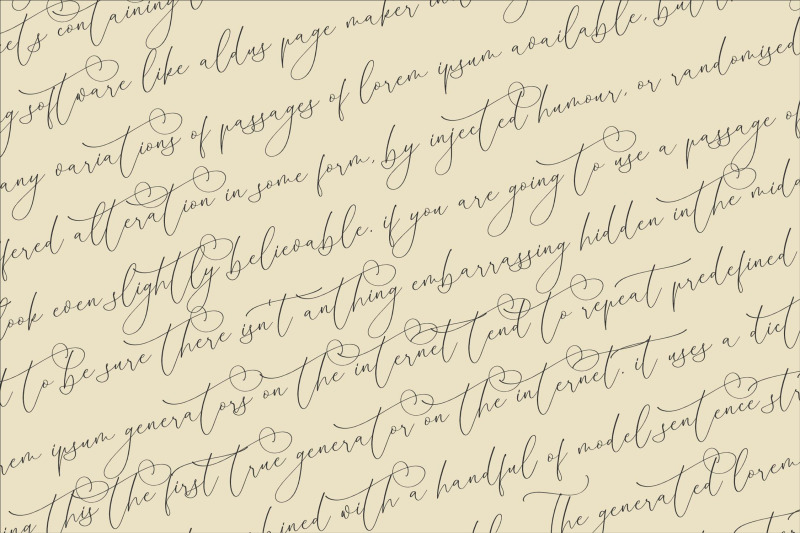 containing
software like aldus page maker in
any variations of passages of lorem ipsum available, but
alteration in some form, by injected humour, or randomised
look even slightly believable. if you are going to use a passage of
to be sure there isn't anthing embarrassing hidden in the
ipsum generators on the internet tend to repeat predefined
this the first true generator on the internet. it uses a
with a handful of model sentence
The generated lorem